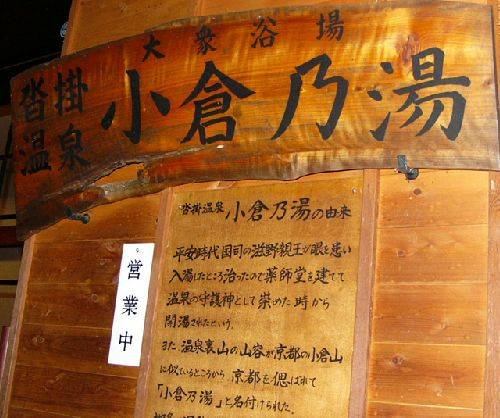 大衆浴場
沓掛温泉
小倉乃湯
沓掛温泉 小倉乃湯の由来
平安時代国司の滋野親王が眼を患い
入湯したところ治ったので薬師堂を建てて
温泉の守護神として崇めた時から
開湯されたという。
また、温泉裏山の山容が京都の小倉山
に似ているところから、京都を偲ばれて
「小倉乃湯」と名付けられた。
営業中